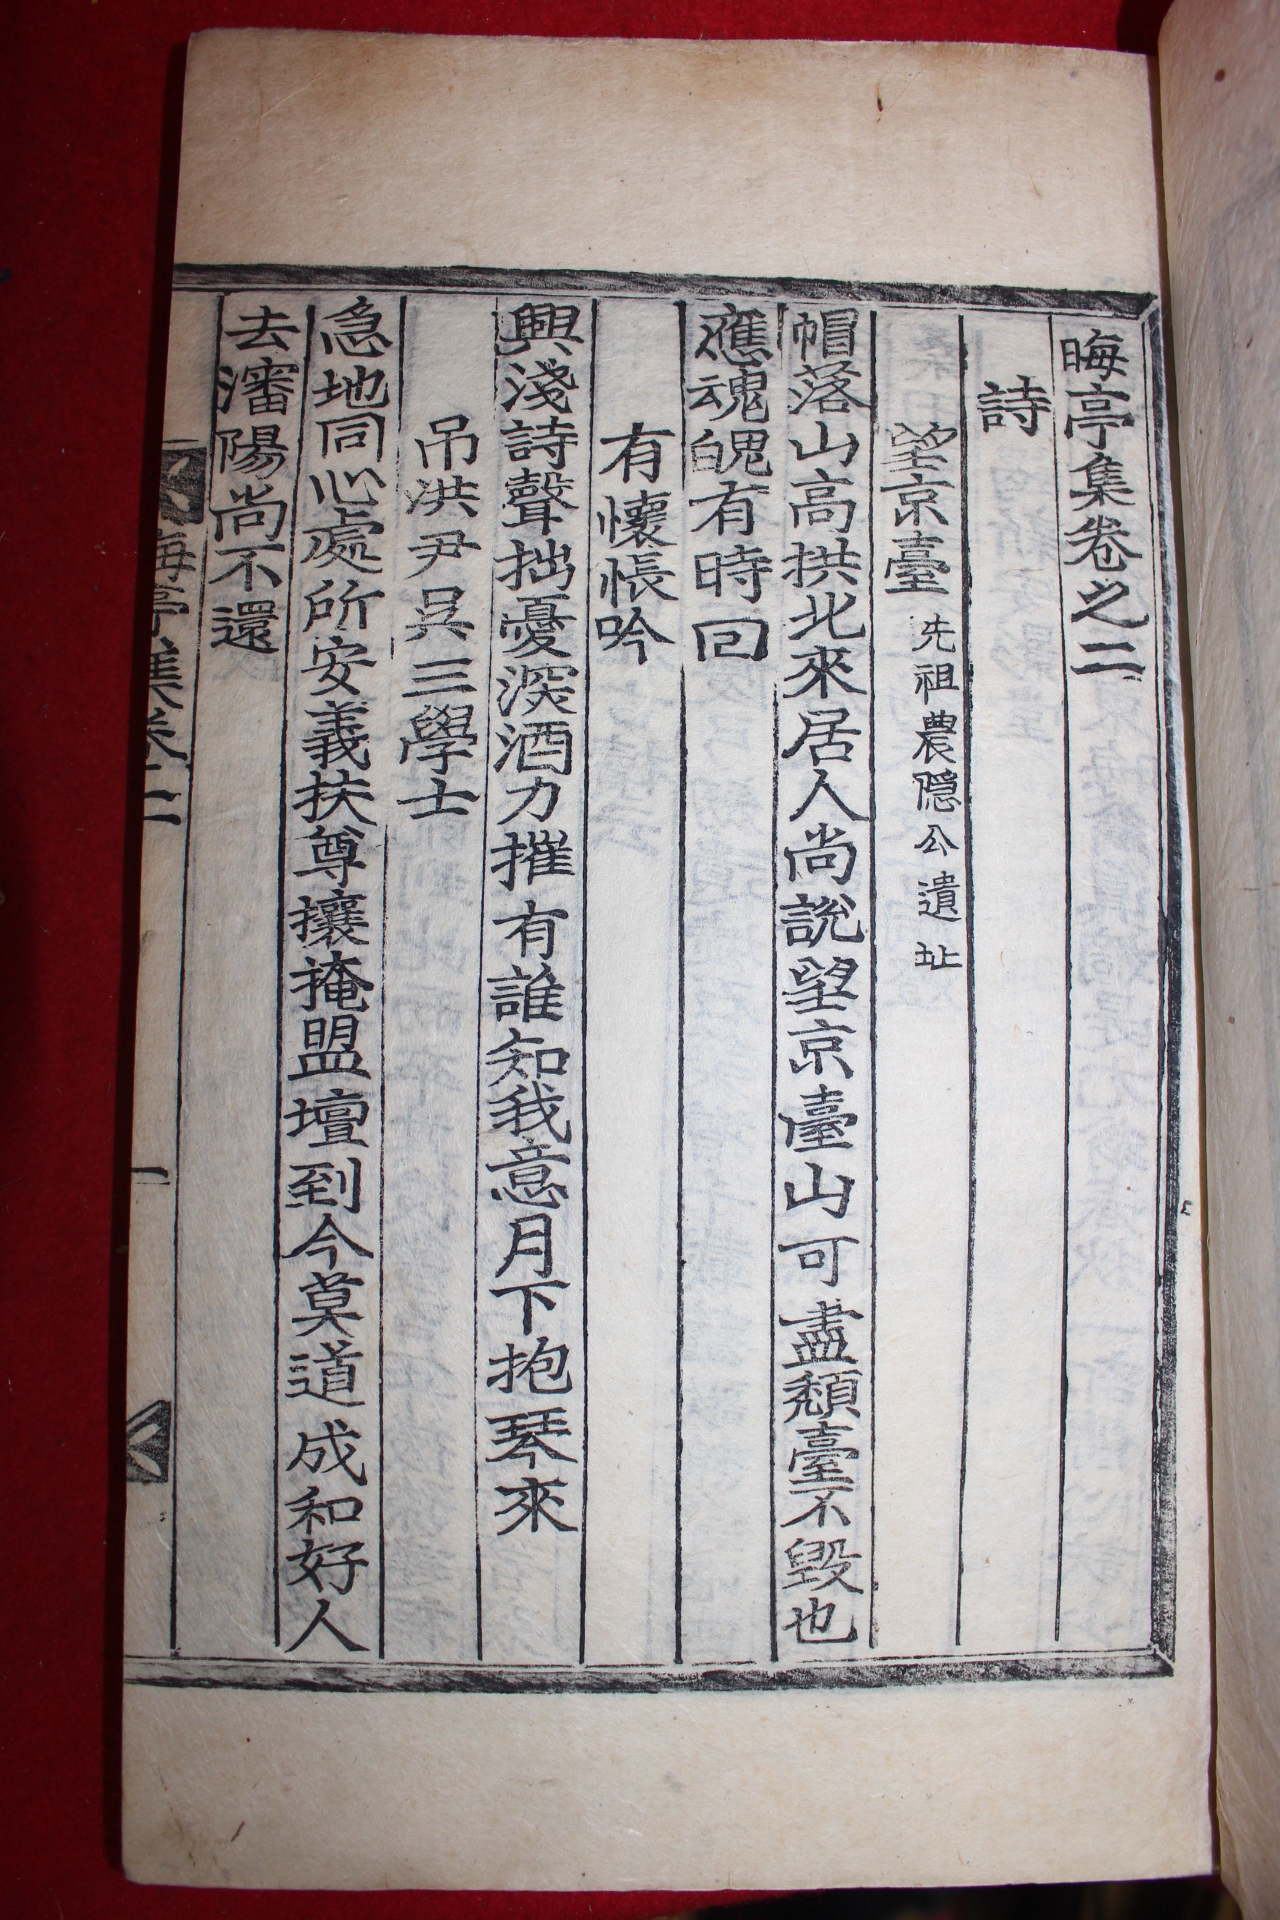 晦亭集卷之二
詩
望京臺 先祖農隱公遺址
帽落山高拱北來居人尚說望京臺山可盡頹臺不毁也
應魂魄有時回
有懷悵吟
興淺詩聲拙憂深酒力摧有誰知我意月下抱琴來
吊洪尹吳三學士
急地同心處所安義扶尊攘掩盟壇到今莫道成和好人
去瀋陽尚不還
晦亭集卷二
一